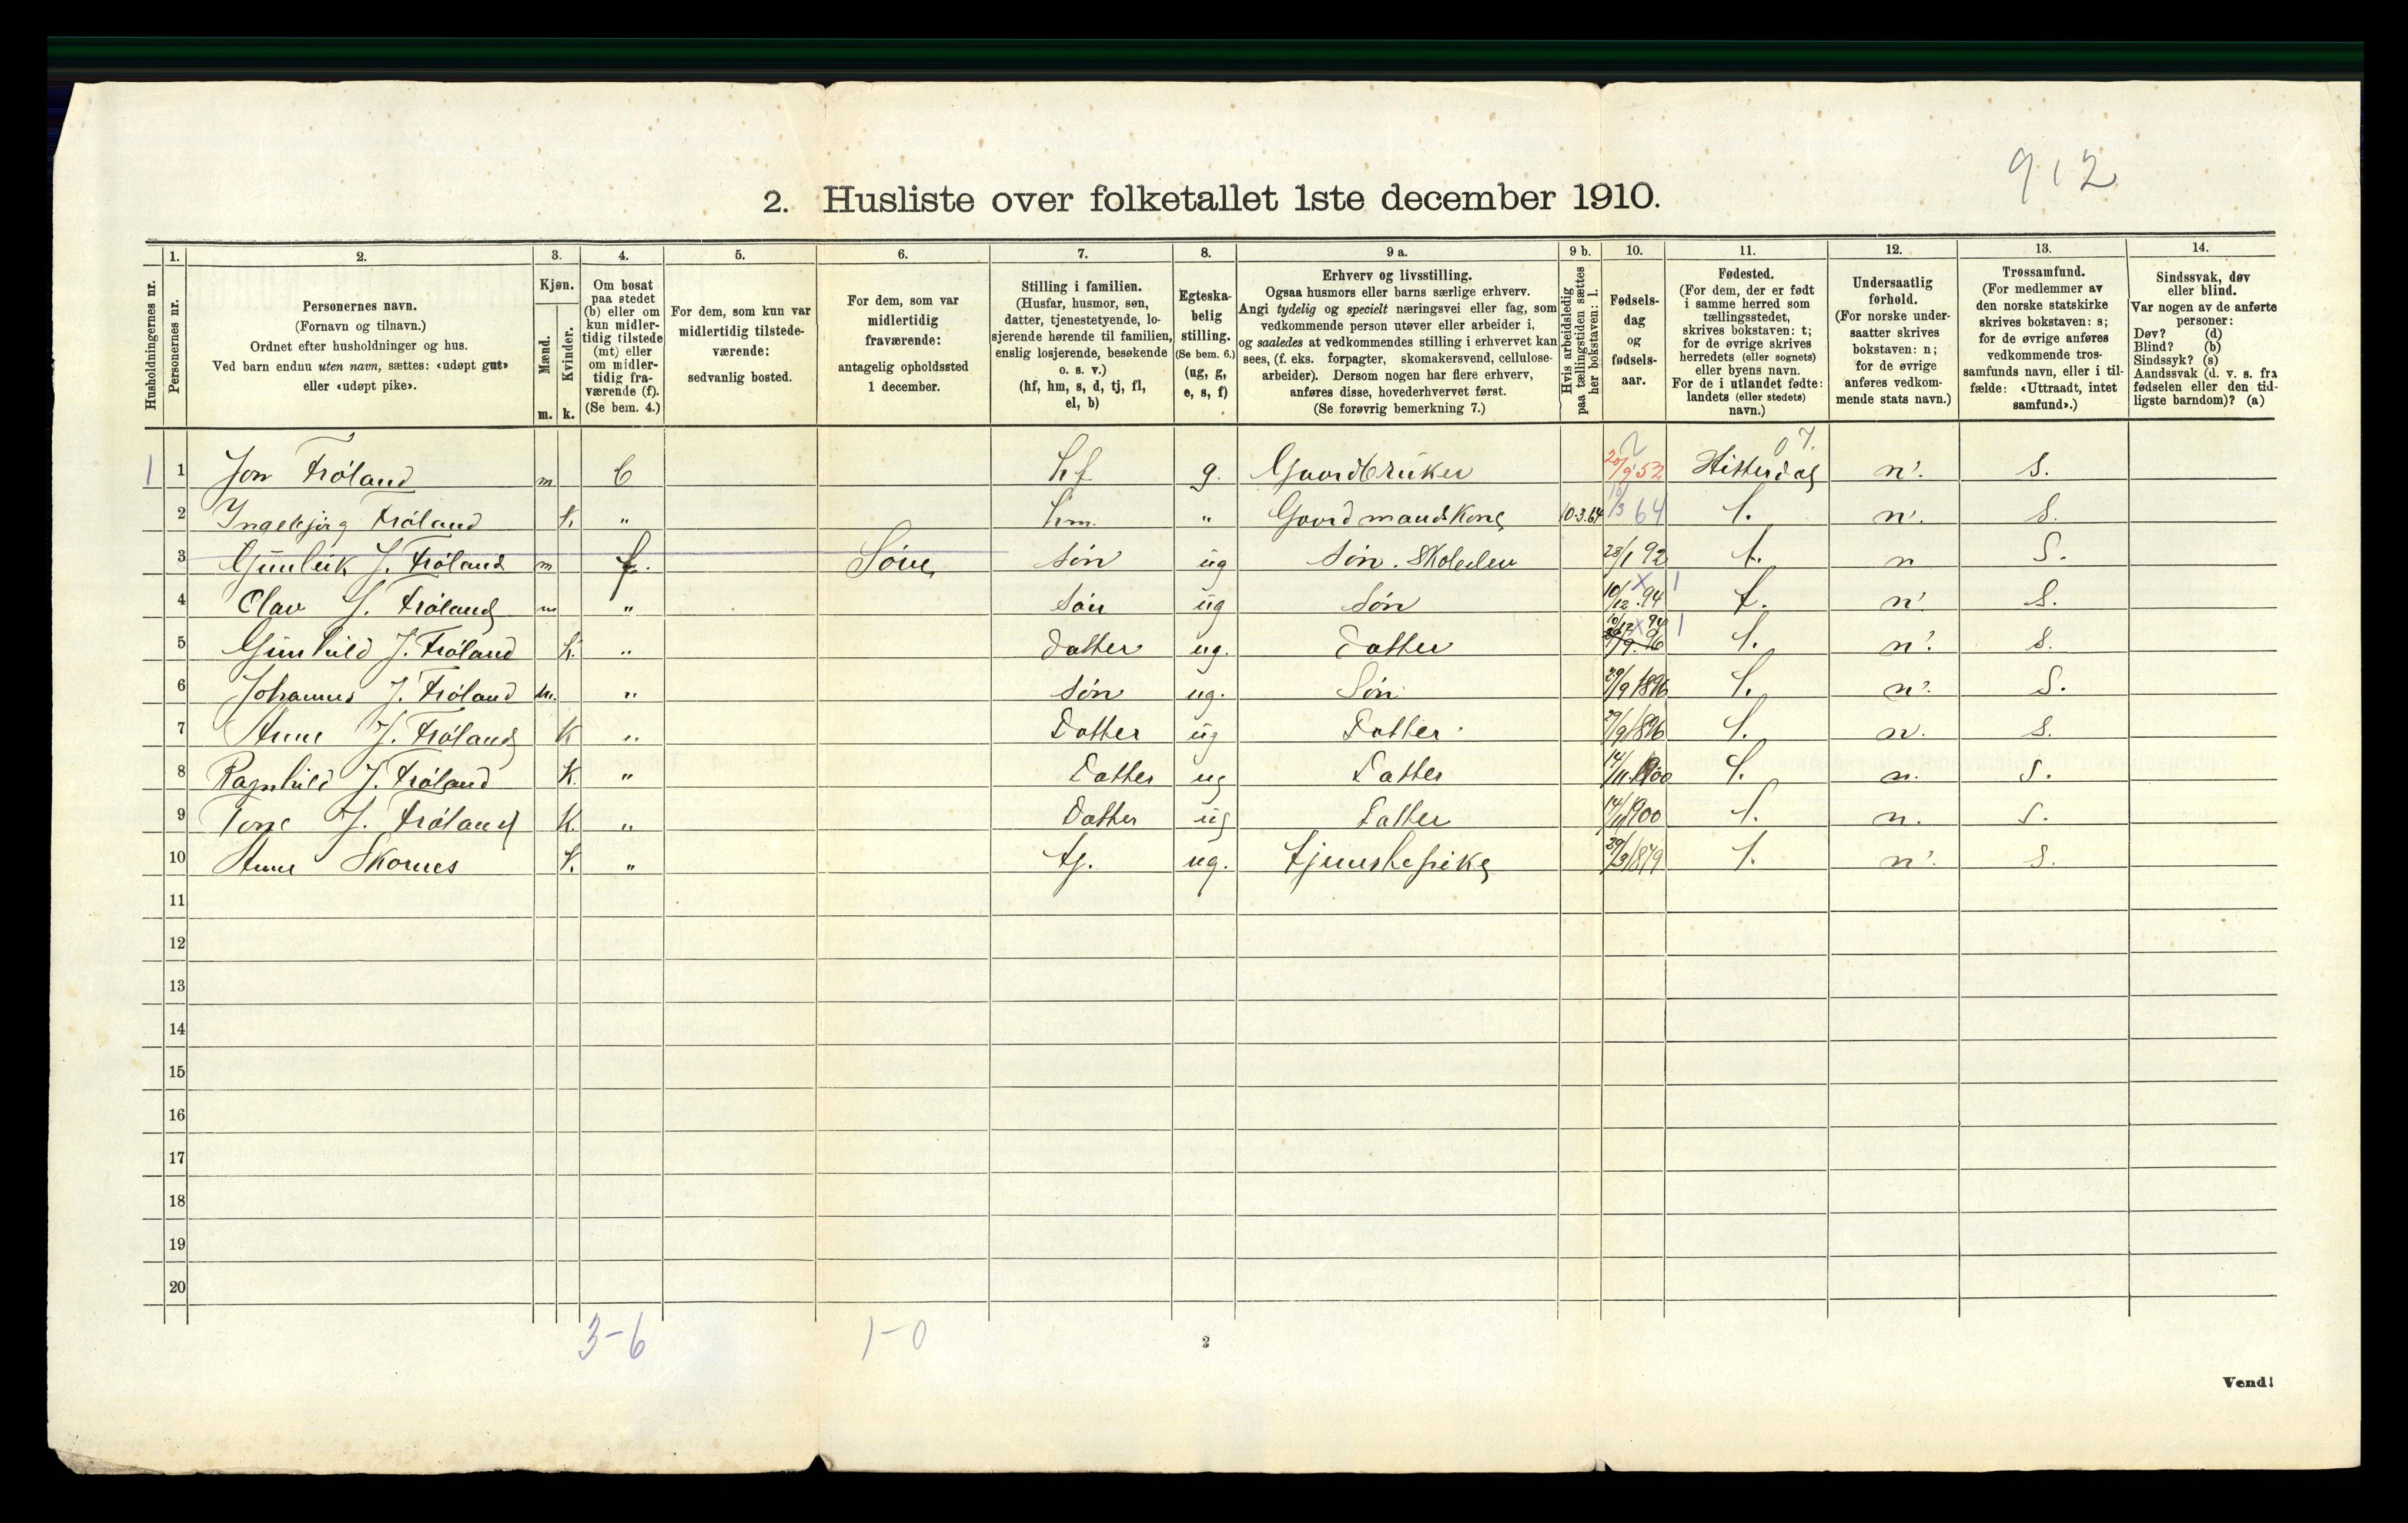 912
2. Husliste over folketallet 1ste december 1910.
Husholdningernes nr.
1.
Personernes nr.
2.
Personernes navn.
(Fornavn og tilnavn.)
Ordnet efter husholdninger og hus.
Ved barn endnu uten navn, sættes: «udøpt gut»
eller «udøpt pike».
3.
Kjøn.
Mænd.
Kvinder.
m. k.
4.
Om bosat
paa stedet
(b) eller om
kun midler-
tidig tilstede
(mt) eller
om midler-
tidig fra-
værende (f).
(Se bem. 4.)
5.
For dem, som kun var
midlertidig tilstede-
værende:
sedvanlig bosted.
6.
For dem, som var
midlertidig
fraværende:
antagelig opholdssted
1 december.
7.
Stilling i familien.
(Husfar, husmor, søn,
datter, tjenestetyende, lo-
sjerende hørende til familien,
enslig losjerende, besøkende
o. s. v.)
(hf, hm, s, d, tj, fl,
el, b)
8.
Egteska-
belig
stilling.
(Se bem. 6.)
(ug, g,
e, s, f)
9 a.
Erhverv og livsstilling.
Ogsaa husmors eller barns særlige erhverv.
Angi tydelig og specielt næringsvei eller fag, som
vedkommende person utøver eller arbeider i,
og saaledes at vedkommendes stilling i erhvervet kan
sees, (f. eks. forpagter, skomakersvend, cellulose-
arbeider). Dersom nogen har flere erhverv,
anføres disse, hovederhvervet først.
(Se forøvrig bemerkning 7.)
9 b.
Hvis arbeidsledig
paa tællingstiden sættes
her bokstaven: l.
10.
Fødsels-
dag
og
fødsels-
aar.
11.
Fødested.
(For dem, der er født
i samme herred som
tællingsstedet,
skrives bokstaven: t;
for de øvrige skrives
herredets (eller sognets)
eller byens navn.
For de i utlandet fødte:
landets (eller stedets)
navn.)
12.
Undersaatlig
forhold.
(For norske under-
saatter skrives
bokstaven: n;
for de øvrige
anføres vedkom-
mende stats navn.)
13.
Trossamfund.
(For medlemmer av
den norske statskirke
skrives bokstaven: s;
for de øvrige anføres
vedkommende tros-
samfunds navn, eller i til-
fælde: «Uttraadt, intet
samfund».)
14.
Sindssvak, døv
eller blind.
Var nogen av de anførte
personer:
Døv? (d)
Blind? (b)
Sindssyk? (s)
Aandssvak (d. v. s. fra
fødselen eller den tid-
ligste barndom)? (a)
1 1 Jon Frøland m b hf g. Gaardbruker 20/9 52 Hitterdal n. s.
2 Ingebjørg Frøland k. " hm. " Gaardmandskone 10·3.64 10/3 64 t. n. s.
3 Gunleik J. Frøland m f. Søve søn ug Søn. Skoleelev 28/1 92 t. n s.
4 Olav J. Frøland m " søn ug Søn 10/12 .94 t. n. s.
5 Gunhild J. Frøland k. " Datter ug. Datter 10/12 94 t. n. s.
6 Johannes J. Frøland m. " søn ug. Søn 29/9 1896 t. n. s.
7 Anne J. Frøland K " Datter ug Datter 29/9 1896 t. n. s.
8 Ragnhild J. Frøland K. " Datter ug Datter 14/11 1900 t. n. s.
9 Tone J. Frøland K. " Datter ug Datter 14/11 1900 t. n. s.
10 Anne Skornes k. " tj. ug. tjenestepike 29/3 1879 t. n. s.
11
12
13
14
15
16
17
18
19
20
3-6 1-0
2
Vend!